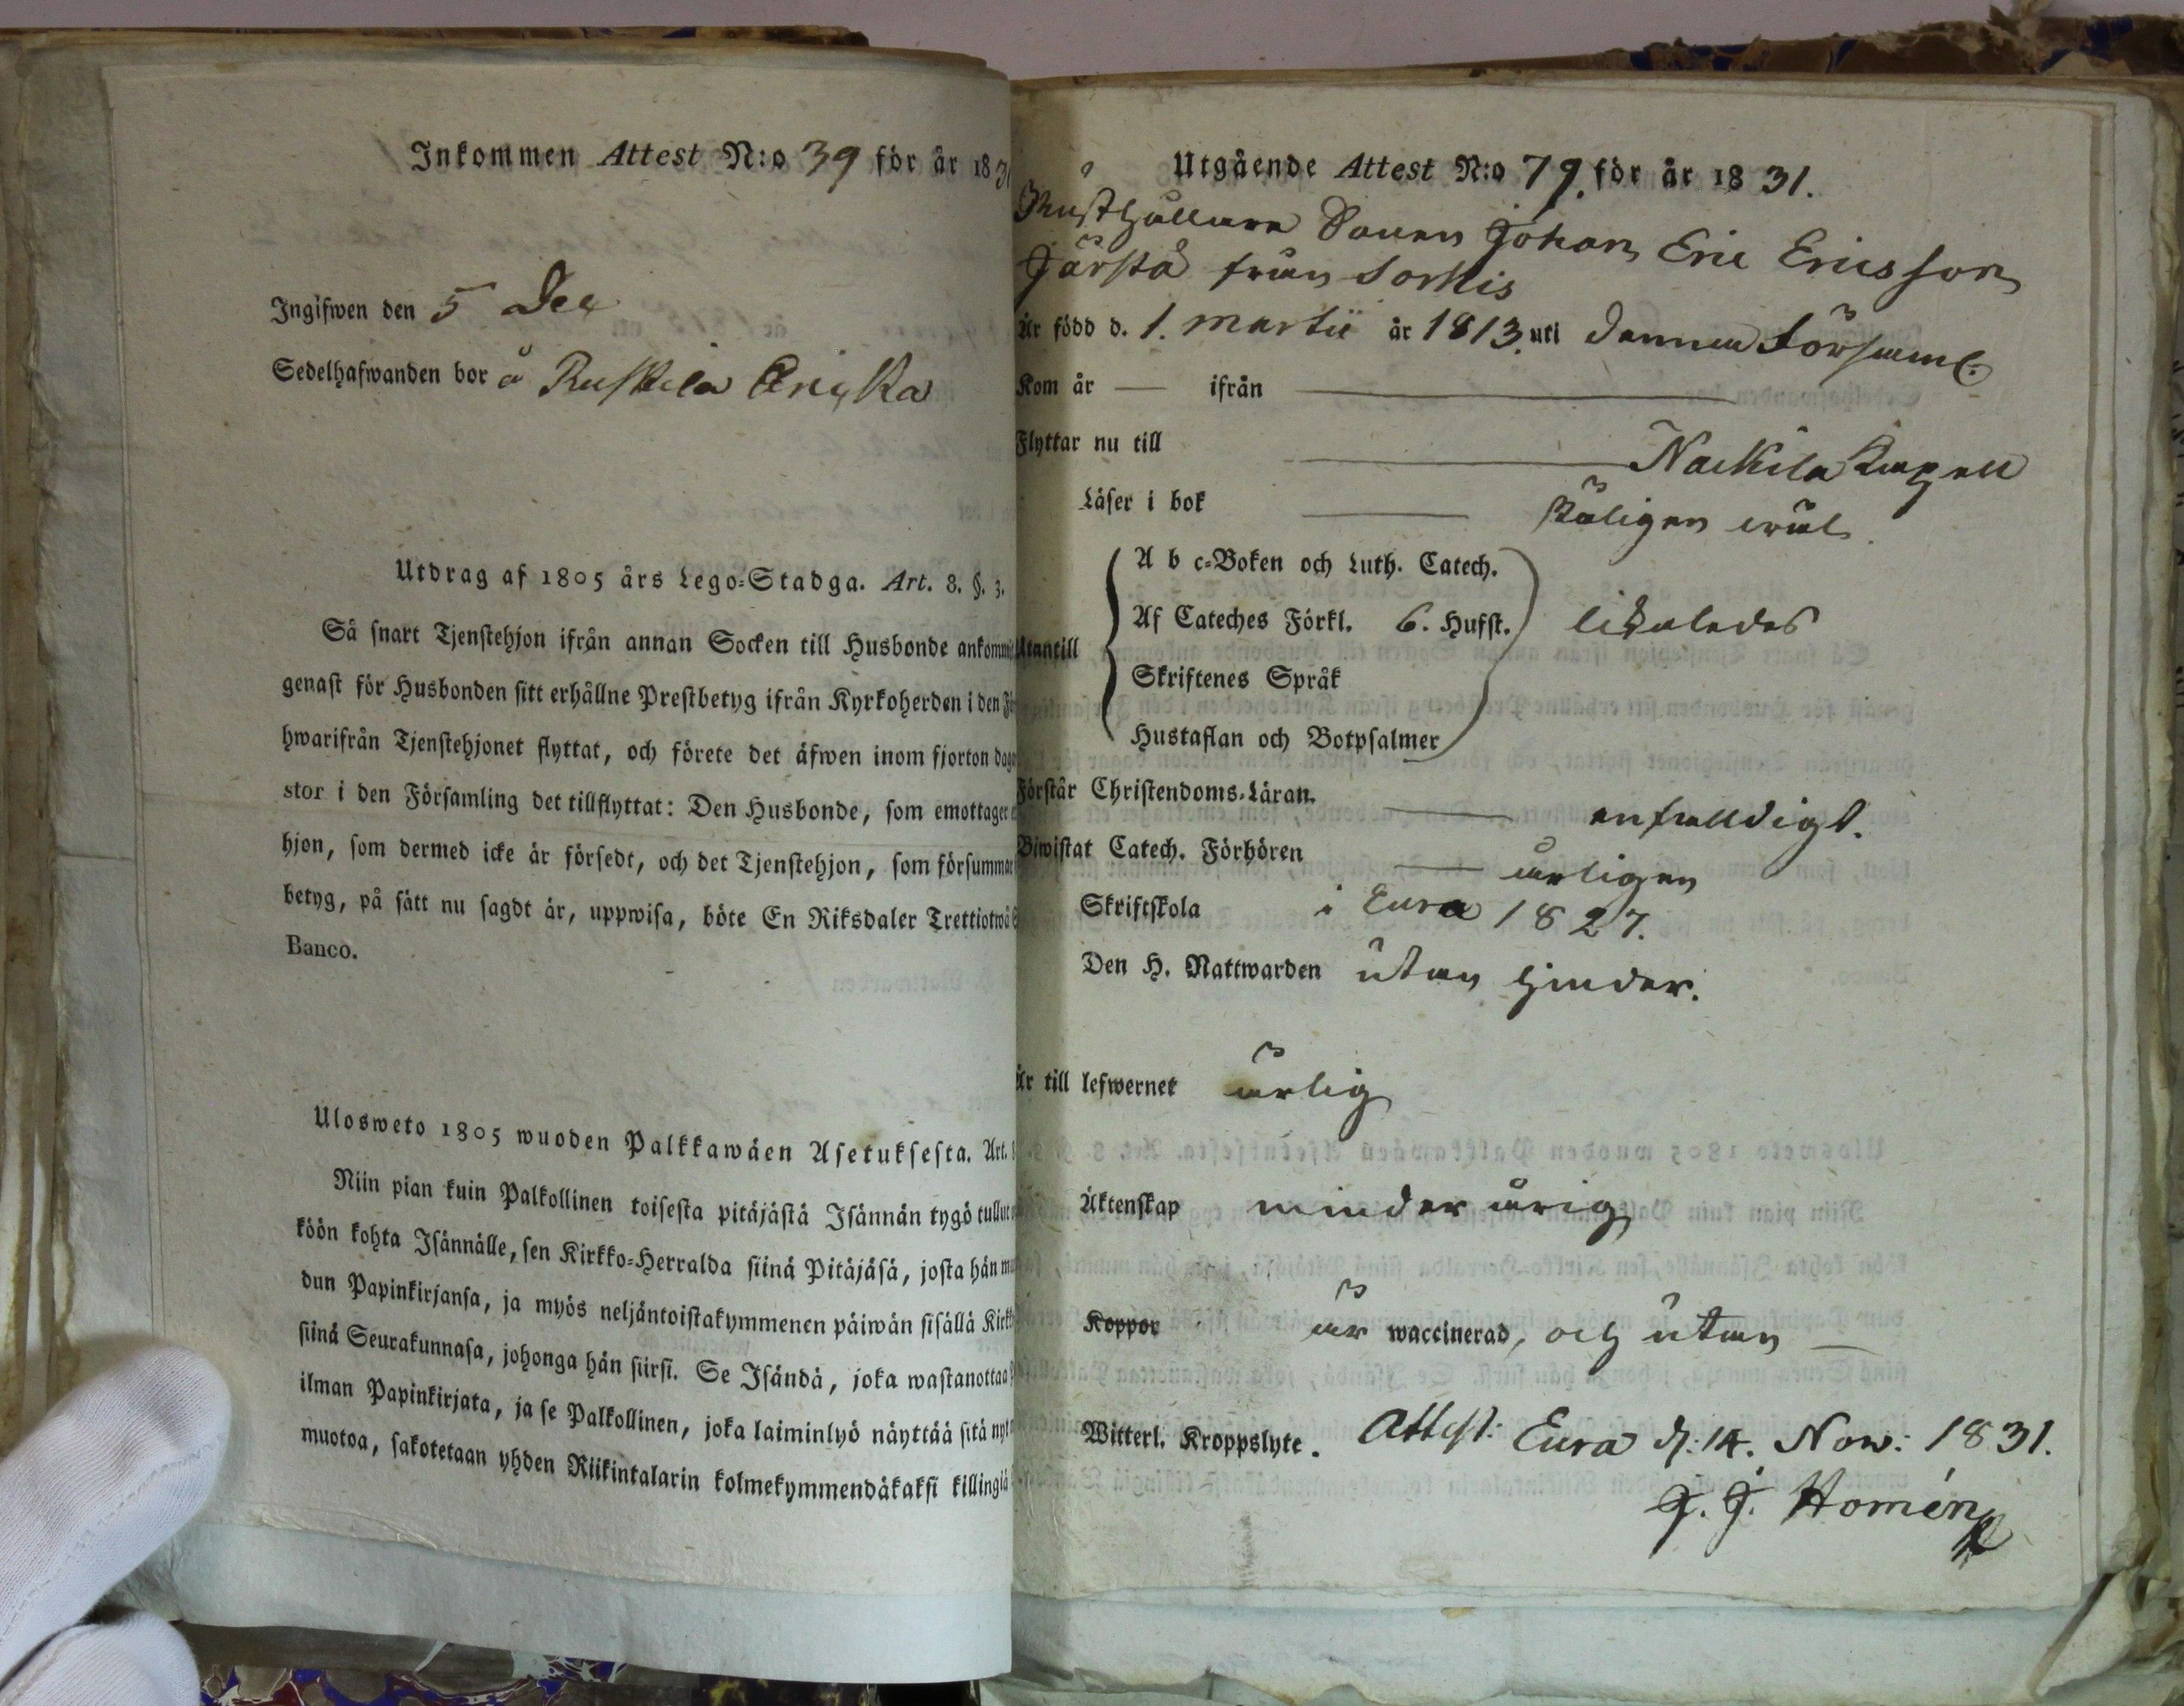 Inkommen Attest N:o 39 för år 1831
Ingifwen den 5 Dec
Sedelhafwanden bor å Ruskila
Utdrag af 1805 års Lego-Stadga. Art. 8. §. 3.
Så snart Tjenstehjon ifrån annan Socken till Husbonde ankommit
genast för Husbonden sitt erhållne Prestbetyg ifrån Kyrkoherden i den
hwarifrån Tjenstehjonet flyttat, och förete det äfwen inom fjorton
stor i den Församling det tillflyttat: Den Husbonde, som emottager
hjon, som dermed icke är försedt, och det Tjenstehjon, som försummar
betyg, på sätt nu sagdt är, uppwisa, böte En Riksdaler Trettiotwå
Banco.
Ulosweto 1805 wuoden Palkkawäen Asetuksesta. Art.
Niin pian kuin Palkollinen toisesta pitäjästä Isännän tygö tullut
köön kohta Isännälle, sen Kirkko-Herralda siinä Pitäjäsä, josta hän
dun Papinkirjansa, ja myös neljäntoistakymmenen päiwän sisällä
siinä Seurakunnasa, johonga hän siirsi. Se Isändä, joka wastanottaa
ilman Papinkirjata, ja se Palkollinen, joka laiminlyö näyttää sitä
muotoa, sakotetaan yhden Riikintalarin kolmekymmendäkaksi killingiä
Utgående Attest N:o 79. för år 1831.
Rusthållare Sonen Johan Eric Ericsson
Järstå från Sorkis
Är född d. 1. Martii år 1813. uti denna Församl.
Kom år — ifrån —
Flyttar nu till — Nackila Capell
Läser i bok — skäligen wäl.
A b c-Boken och Luth. Catech.
Af Cateches Förkl. 6. Hufst.
Utantill
likaledes
Skriftenes Språk
Hustaflan och Botpsalmer
Förstår Christendoms-Läran. — enfalldigt.
Biwistat Catech. Förhören — årligen
Skriftskola i Eura 1827.
Den H. Nattwarden utan hinder.
Är till lefwernet ärlig
Äktenskap minderårig
Koppor är waccinerad, och utan —
Witterl. Kroppslyte. Attest: Eura d: 14. Now: 1831.
J. J. Homén